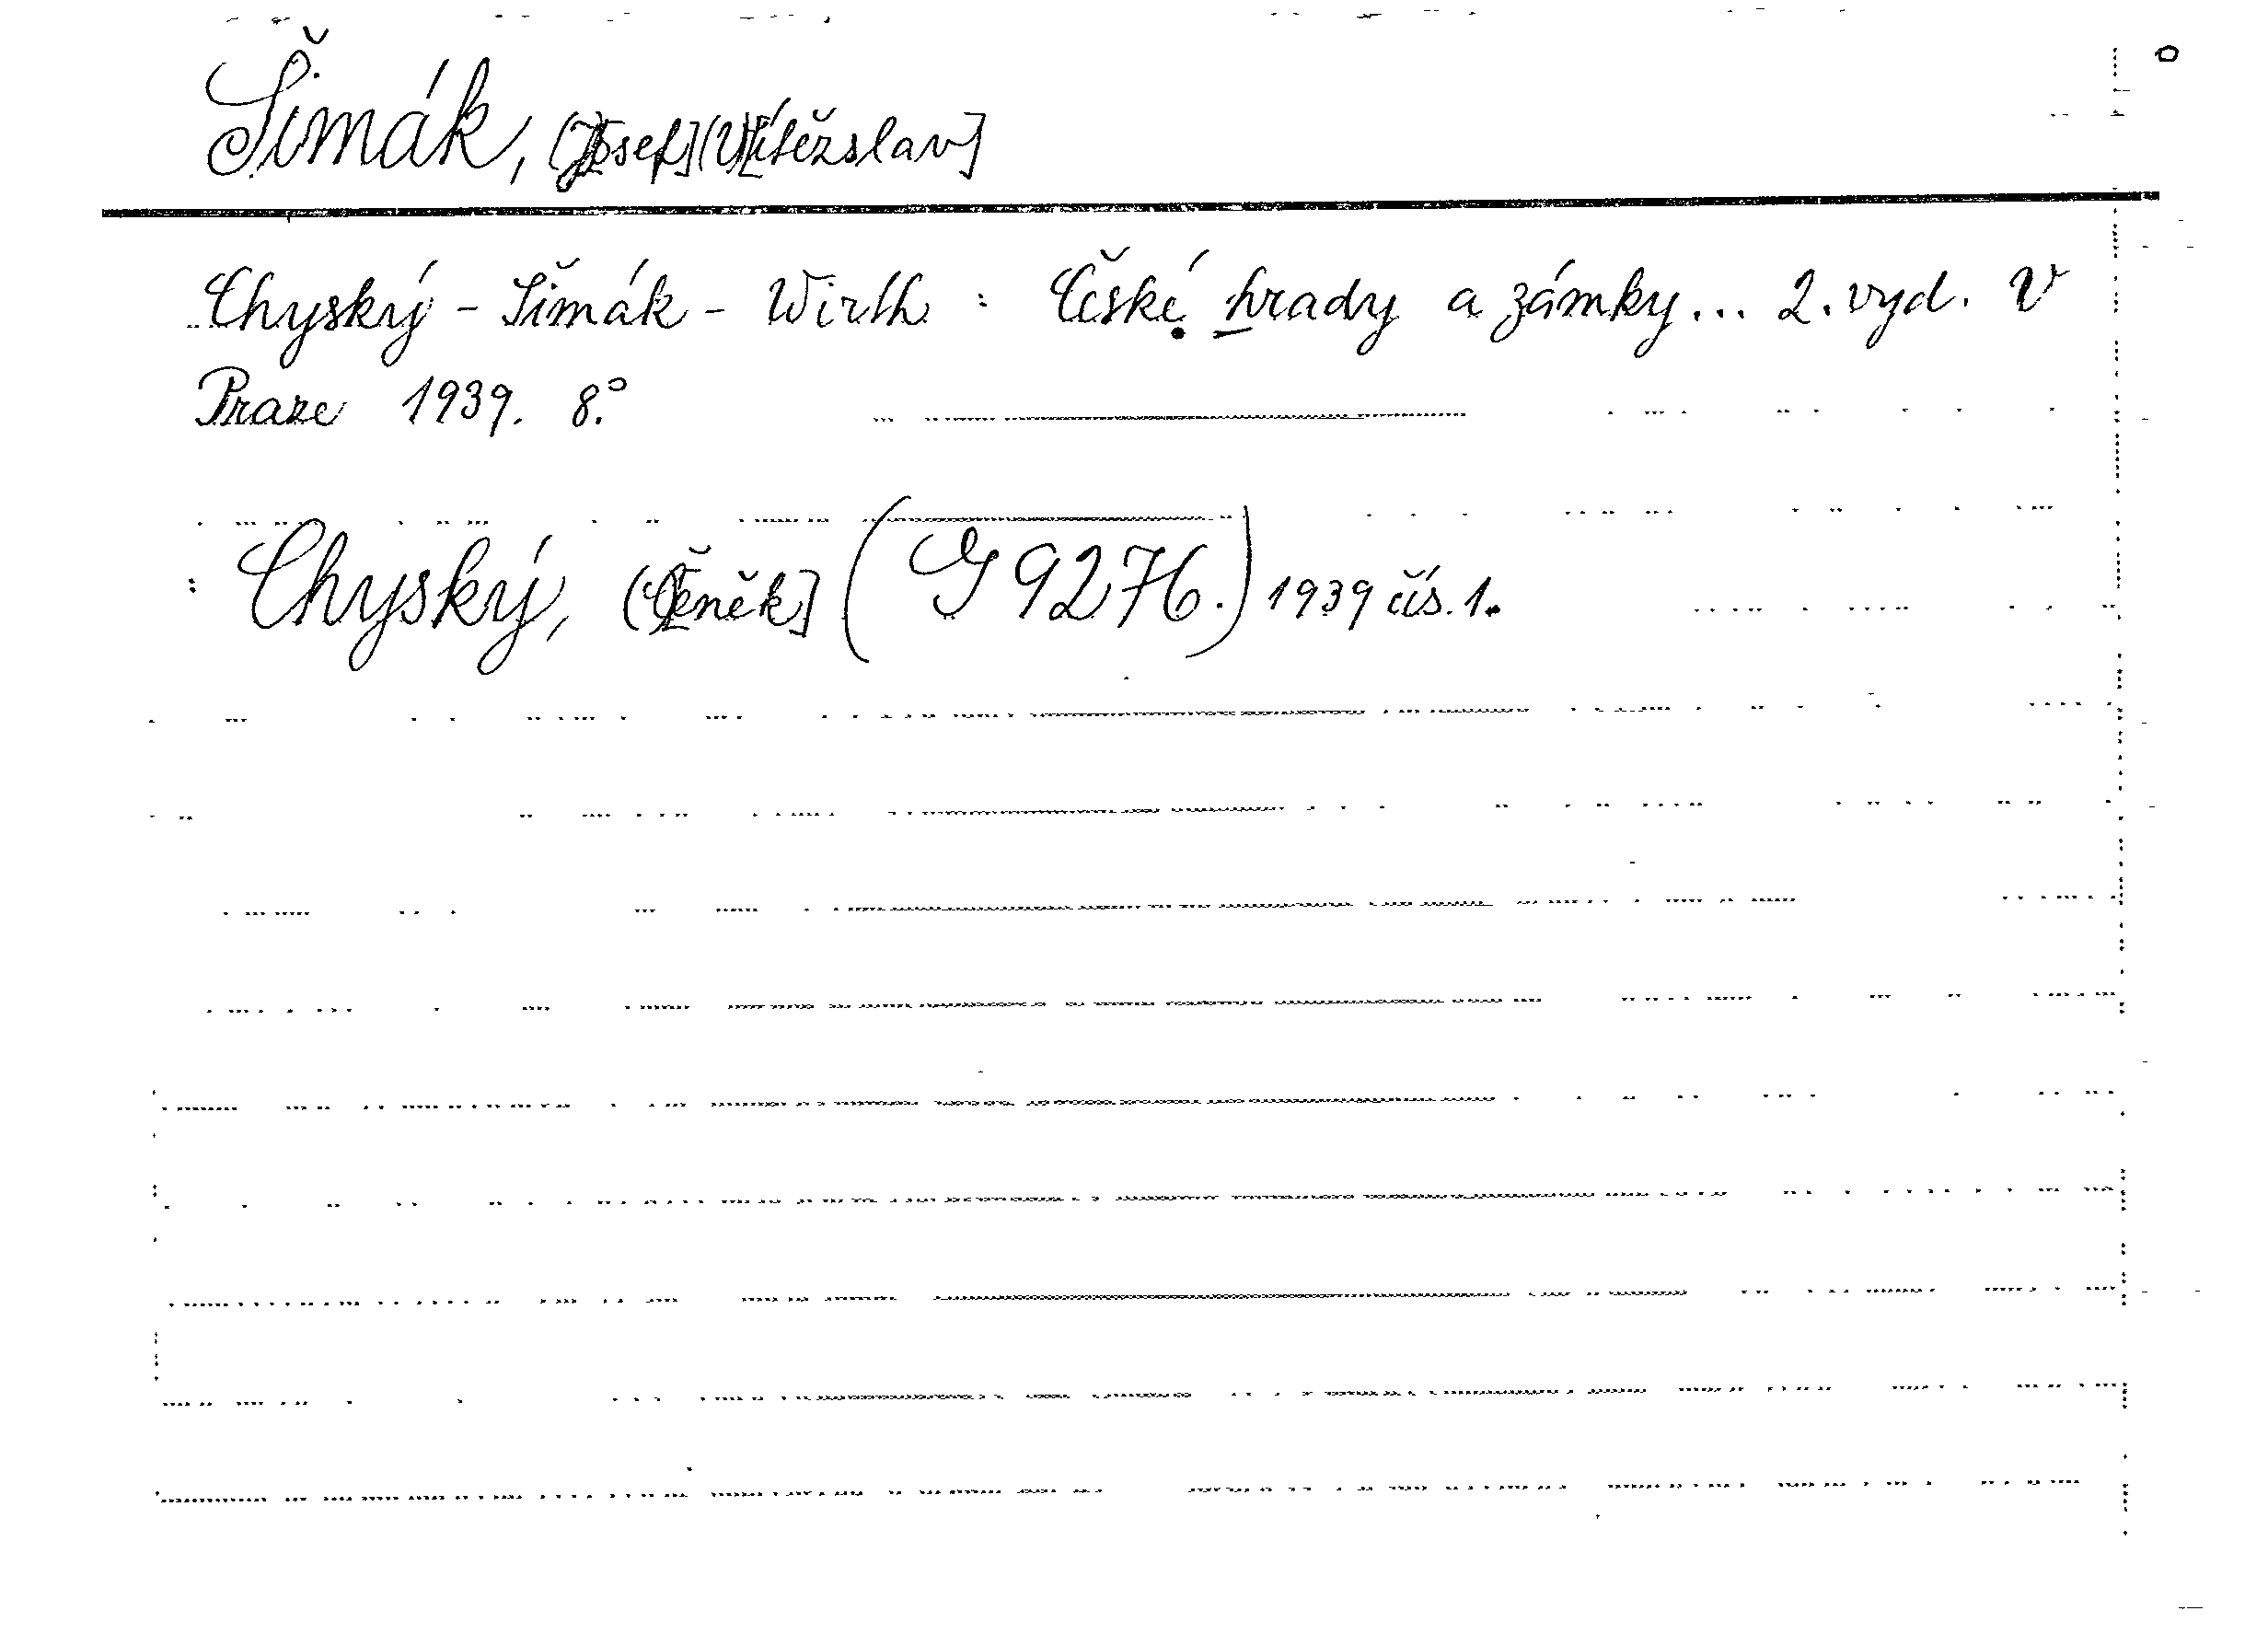 Šimák, (J)[osef] (V)[ítězslav]
Chyský - Šimák - Wirth : České hrady a zámky... 2. vyd. V
Praze 1939. 8.°
: Chyský, (Č)[eněk] (G 9276.) 1939 čís. 1.